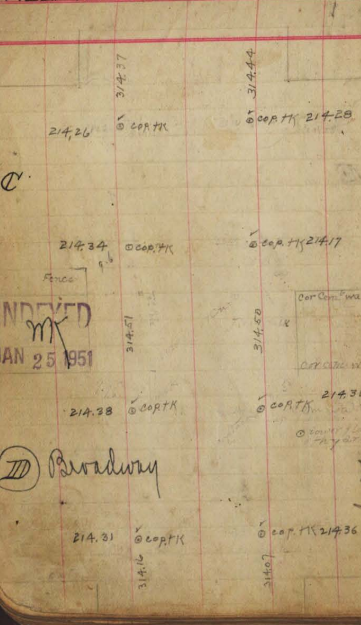 314.37
314.44
214.26 cop. tk
cop. tk 214.28
C.
214.34 cop. tk
cop. tk 214.17
Fence
NDEXED
JAN 25 1951
314.51
314.50
Cor Conc
214.38 cop. tk
cop. tk
III Broadway
214.31 cop. tk
cop. tk 214.36
314.16
314.07